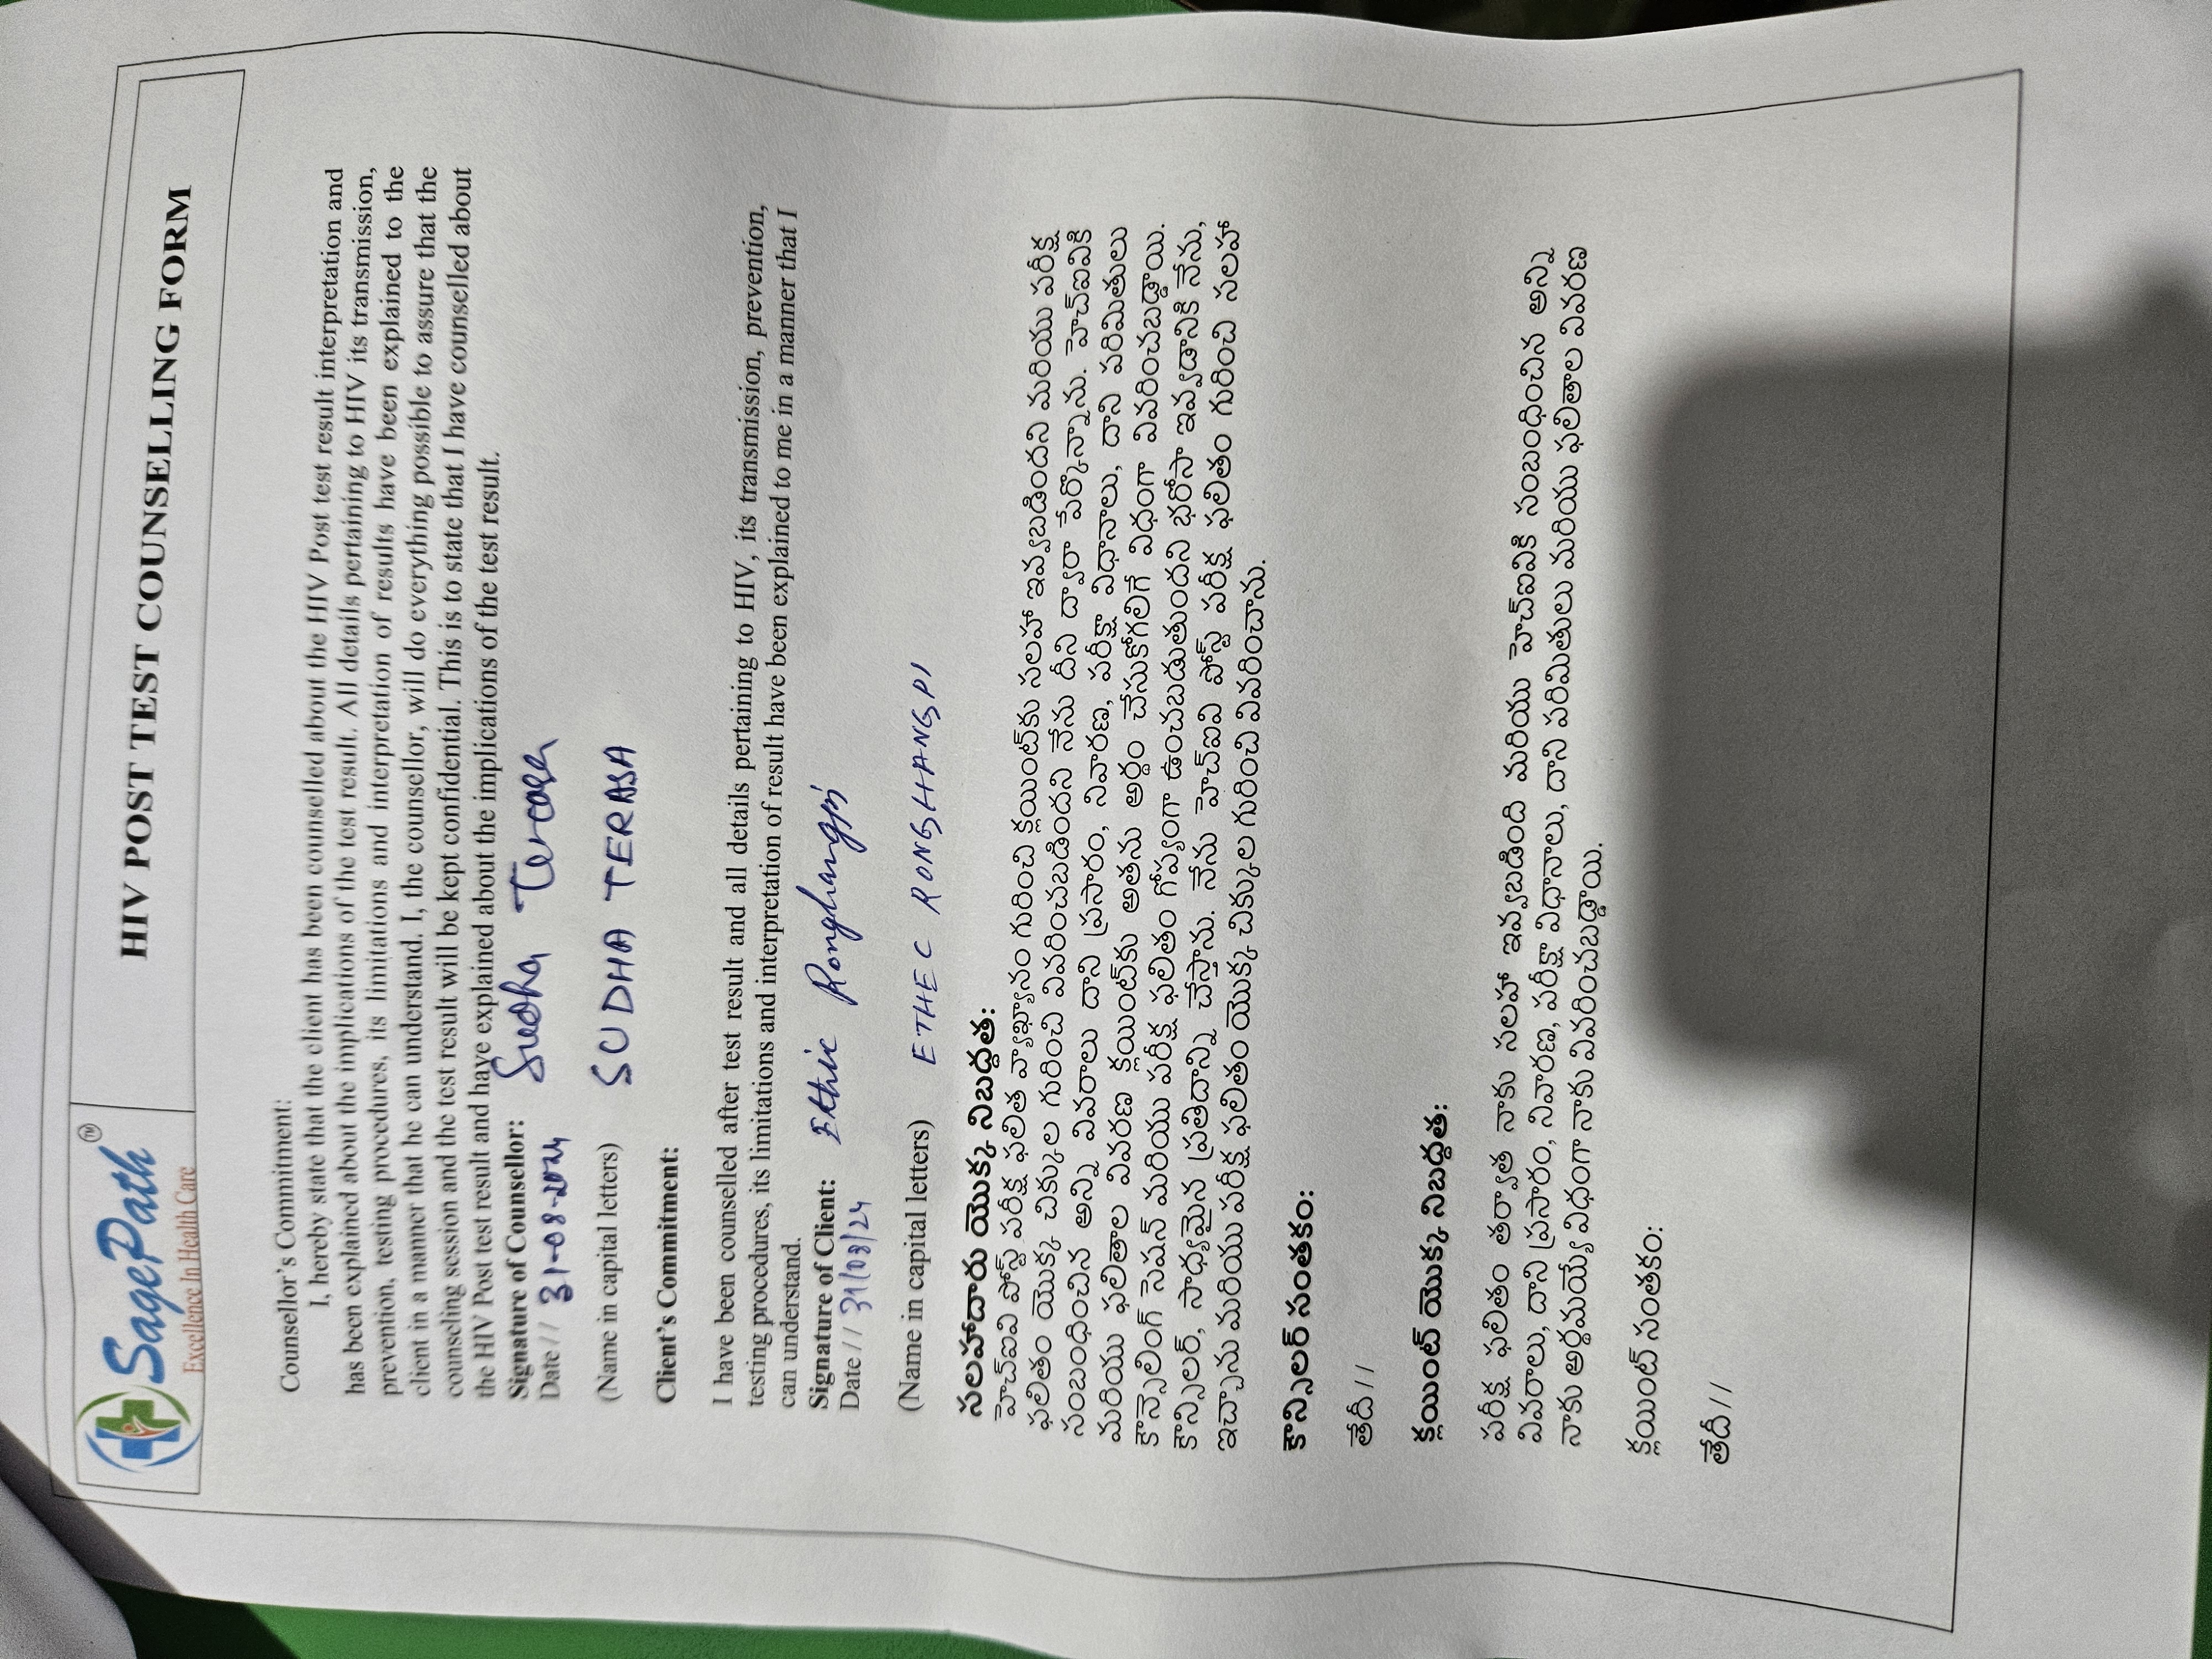 SagePath™
Excellence In Health Care
HIV POST TEST COUNSELLING FORM
Counsellor's Commitment:
I, hereby state that the client has been counselled about the HIV Post test result interpretation and
has been explained about the implications of the test result. All details pertaining to HIV its transmission,
prevention, testing procedures, its limitations and interpretation of results have been explained to the
client in a manner that he can understand. I, the counsellor, will do everything possible to assure that the
counseling session and the test result will be kept confidential. This is to state that I have counselled about
the HIV Post test result and have explained about the implications of the test result.
Signature of Counsellor: Sudha Terasa
Date // 31-08-2024
(Name in capital letters) SUDHA TERASA
Client's Commitment:
I have been counselled after test result and all details pertaining to HIV, its transmission, prevention,
testing procedures, its limitations and interpretation of result have been explained to me in a manner that I
can understand.
Signature of Client: Ethic Ronghangpi
Date // 31/08/24
(Name in capital letters) ETHEC RONGHANGPI
సలహాదారు యొక్క నిబద్ధత:
హెచ్ఐవి పోస్ట్ పరీక్ష ఫలిత వ్యాఖ్యానం గురించి క్లయింట్‌కు సలహా ఇవ్వబడిందని మరియు పరీక్ష
ఫలితం యొక్క చిక్కుల గురించి వివరించబడిందని నేను దీని ద్వారా పేర్కొన్నాను. హెచ్ఐవికి
సంబంధించిన అన్ని వివరాలు దాని ప్రసారం, నివారణ, పరీక్షా విధానాలు, దాని పరిమితులు
మరియు ఫలితాల వివరణ క్లయింట్‌కు అతను అర్థం చేసుకోగలిగే విధంగా వివరించబడ్డాయి.
కౌన్సెలింగ్ సెషన్ మరియు పరీక్ష ఫలితం గోప్యంగా ఉంచబడుతుందని భరోసా ఇవ్వడానికి నేను,
కౌన్సిలర్, సాధ్యమైన ప్రతిదాన్ని చేస్తాను. నేను హెచ్ఐవి పోస్ట్ పరీక్ష ఫలితం గురించి సలహా
ఇచ్చాను మరియు పరీక్ష ఫలితం యొక్క చిక్కుల గురించి వివరించాను.
కౌన్సిలర్ సంతకం:
తేదీ //
క్లయింట్ యొక్క నిబద్ధత:
పరీక్ష ఫలితం తర్వాత నాకు సలహా ఇవ్వబడింది మరియు హెచ్ఐవికి సంబంధించిన అన్ని
వివరాలు, దాని ప్రసారం, నివారణ, పరీక్షా విధానాలు, దాని పరిమితులు మరియు ఫలితాల వివరణ
నాకు అర్థమయ్యే విధంగా నాకు వివరించబడ్డాయి.
క్లయింట్ సంతకం:
తేదీ //